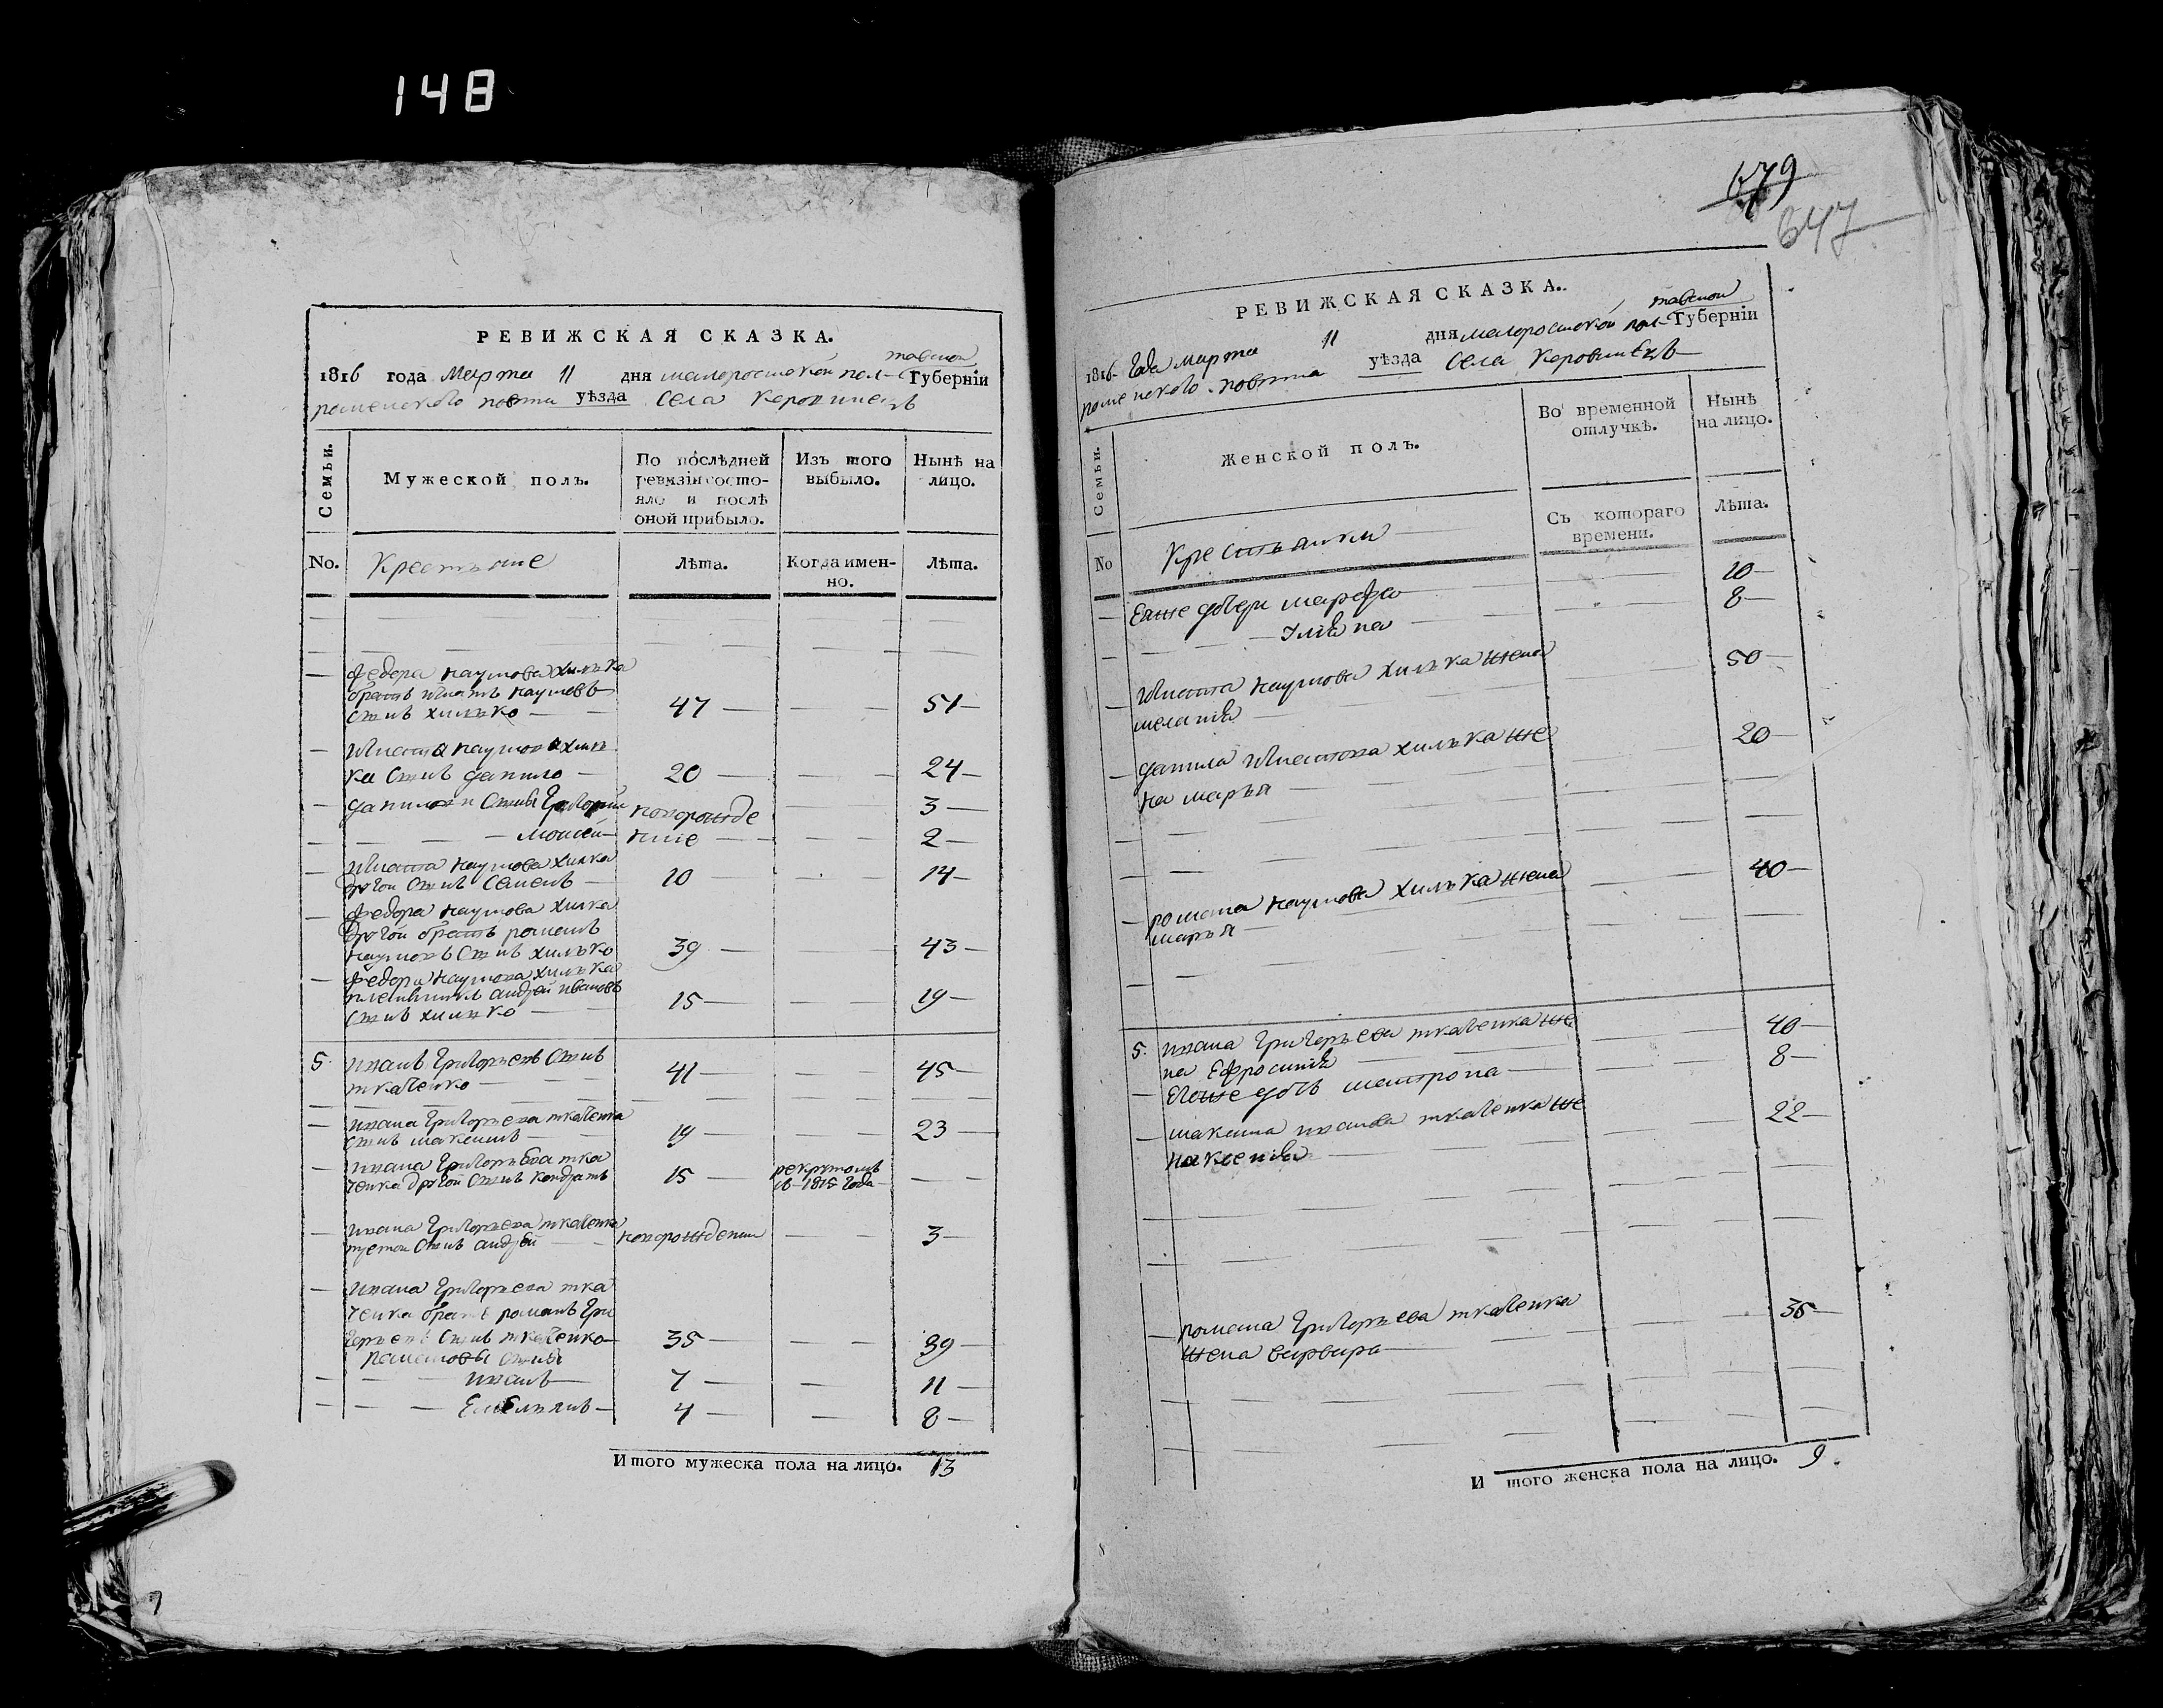 148
РЕВИЖСКАЯ СКАЗКА.
тавской
1816 года Марта 11 дня малоросійской пол- Губерніи
роменского повта уѣзда Села Коровинецъ
Семьи.
Мужеской полъ.
По послѣдней ревизіи состояло и послѣ оной прибыло.
Изъ того выбыло.
Нынѣ на лицо.
No.
Крестьяне
Лѣта.
Когда имен-но.
Лѣта.
— федора наумова хилька
братъ игнатъ наумовъ
сынъ хилько — 47 — — — 51 —
— игната наумова хиль
ка сынъ данило — 20 — — — 24 —
— данилови сыны григорий новорожде — — 3 —
— — — моисей — ние — — — 2 —
— игната наумова хилка
другой сынъ семенъ — 10 — — — 14 —
— федора наумова хилка
другой братъ романъ
наумовъ сынъ хилько 39 — — — 43 —
— федора наумова хилька
племянникъ андрей ивановъ
сынъ хилько — 15 — — — 19 —
5. иванъ григорьевъ сынъ
ткаченко — 41 — — — 45 —
— ивана григорьева ткаченка
сынъ максимъ — 19 — — — 23 —
— ивана григорьева тка
ченка другой сынъ кондратъ 15 — рекрутомъ
въ 1815 года — —
— ивана григорьева ткаченка
третой сынъ андрей — новорожденни — — 3 —
— ивана григорьева тка
ченка братъ романъ гри
горьевъ сынъ ткаченко — 35 — — — 39 —
романовы сыны
— — — иванъ — 7 — — 11 —
— — — Емельянъ — 4 — — 8 —
Итого мужеска пола на лицо. 13
679
647
РЕВИЖСКАЯ СКАЗКА.
тавской
1816 года марта 11 дня малоросійской пол- Губерніи
роменского повта уѣзда Села Коровинецъ
Семьи.
Женской полъ.
Во временной отлучкѣ.
Нынѣ на лицо.
No
Крестьянки
Съ котораго времени.
Лѣта.
— Егоже дочери марфа — 10 —
— Улияна — 8 —
— игната наумова хилька жена — 50 —
меланія —
— данила игнатова хилька же — 20 —
на марья —
— романа наумова хилька жена — 40 —
марья —
5. ивана григорьева ткаченка же — 40 —
на Ефросинія —
— Егоже дочь матрона — 8 —
— максима иванова ткаченка же — 22 —
на ксенія —
— романа григорьева ткаченка — 35 —
жена варвара —
И того женска пола на лицо. 9.